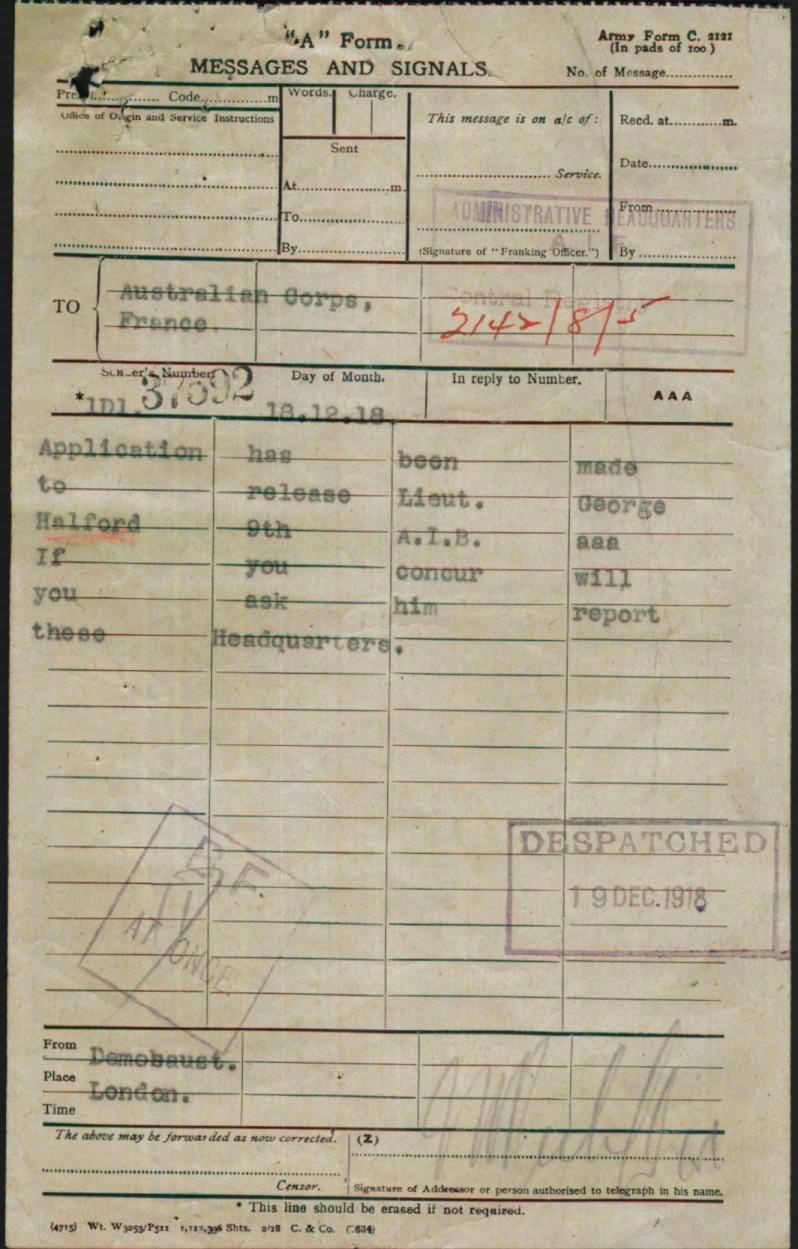 "A" Form.
Army Form C. 2121
(In pads of 100)
MESSAGES AND SIGNALS.
No. of Message
Code m
Words. Charge.
Office of Origin and Service Instructions
This message is on a/c of:
Recd. at m.
Sent
Date
Service.
At m.
From
To
ADMINISTRATIVE HEADQUARTERS
By
(Signature of "Franking Officer.")
By
TO
Australian Corps,
France.
Central
2142/8/5
Sender's Number.
Day of Month.
In reply to Number.
AAA
*1D1. 37592
18.12.18
Application has been made
to release Lieut. George
Halford 9th A.I.B. aaa
If you concur will
you ask him report
these Headquarters.
DESPATCHED
19 DEC. 1918
B.F.
AT ONCE
From Demobaust.
Place London.
Time
The above may be forwarded as now corrected.
(Z)
Censor.
Signature of Addressor or person authorised to telegraph in his name.
* This line should be erased if not required.
(4715) Wt. W3053/P511 1,112,396 Shts. 2/18 C. & Co. (E634)